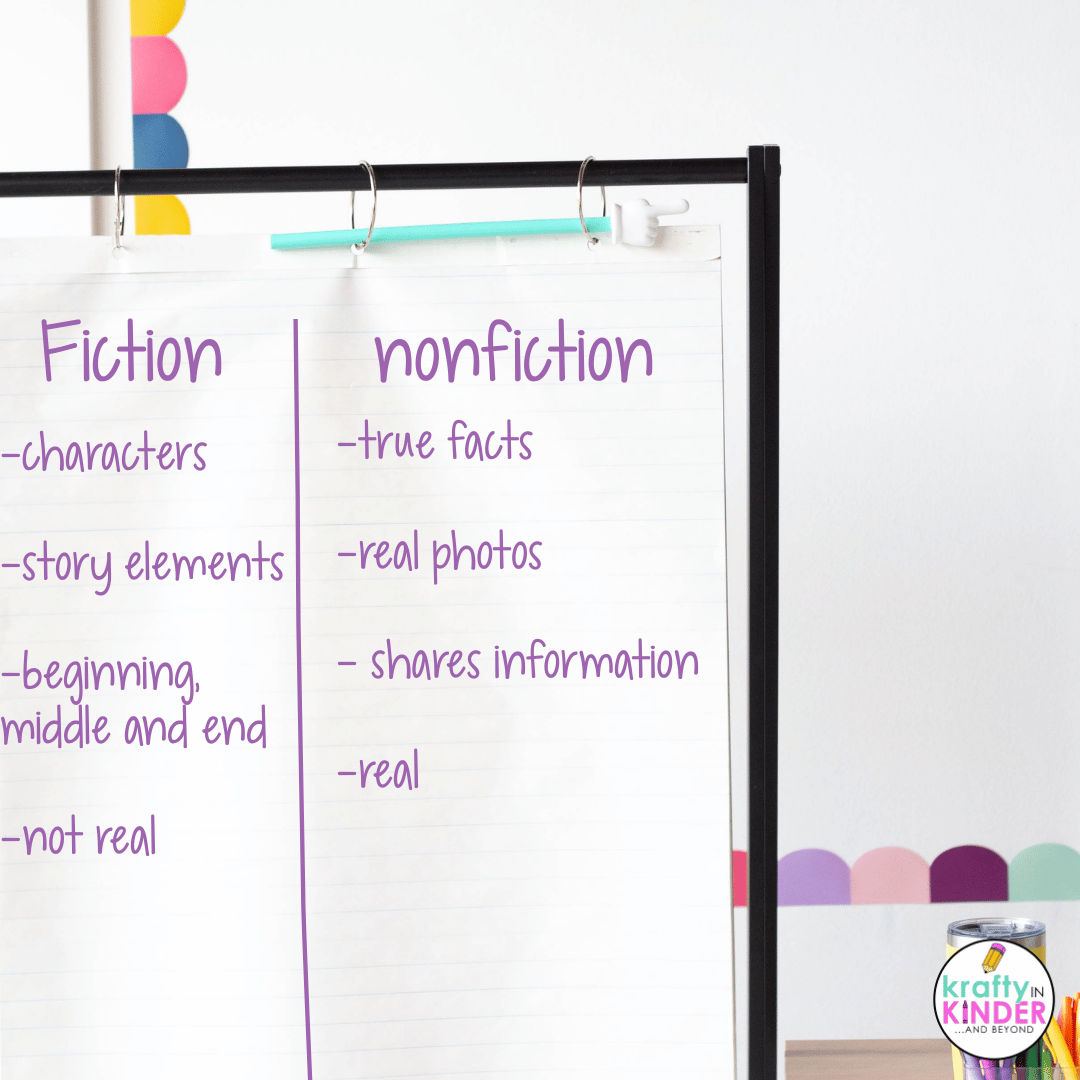 Fiction
-characters
-story elements
-beginning,
middle and end
-not real
nonfiction
-true facts
-real photos
- shares information
-real
krafty IN
KINDER
...AND BEYOND